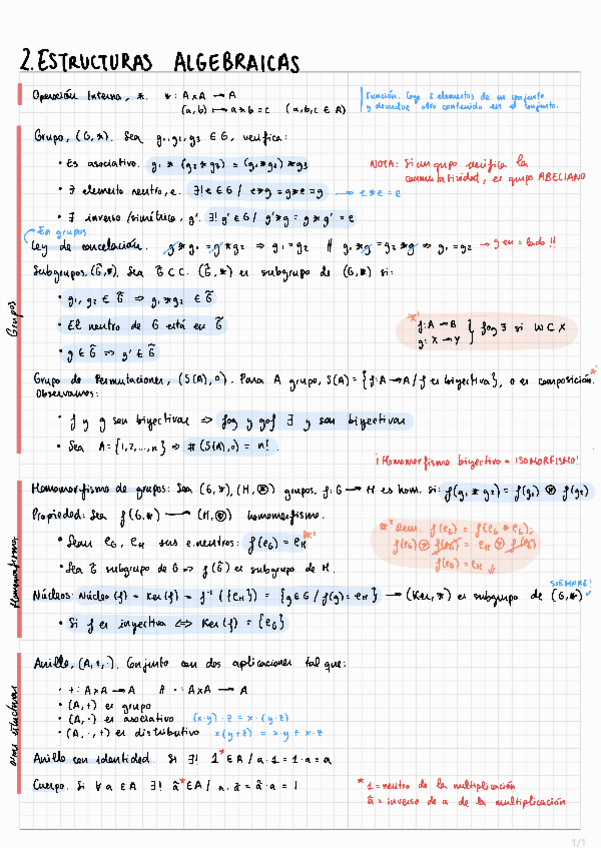 2. ESTRUCTURAS ALGEBRAICAS
Operación Interna, *. *: A×A → A
(a,b) ↦ a*b = c (a,b,c ∈ A)
Función. Coge 2 elementos de un conjunto
y devuelve otro contenido en el conjunto.
Grupos
Grupo, (G,*). Sea g₁,g₂,g₃ ∈ G, verifica:
• Es asociativo. g₁ * (g₂ * g₃) = (g₁ * g₂) * g₃
• ∃ elemento neutro, e. ∃! e ∈ G / e*g = g*e = g → e*e = e
NOTA: Si un grupo verifica la
conmutatividad, es grupo ABELIANO
• ∃ inverso/simétrico, g'. ∃! g' ∈ G / g'*g = g*g' = e
En grupos
Ley de cancelación. g*g₁ = g*g₂ ⇒ g₁ = g₂ // g₁*g = g₂*g ⇒ g₁ = g₂ → g en = lado!!
Subgrupos, (G̃,*). Sea G̃ ⊂ G. (G̃,*) es subgrupo de (G,*) si:
• g₁, g₂ ∈ G̃ ⇒ g₁*g₂ ∈ G̃
• El neutro de G está en G̃
• g ∈ G̃ ⇒ g' ∈ G̃
*¹ f: A → B
g: X → Y } fog ∃ si W ⊂ X
Grupo de Permutaciones, (S(A),o). Para A grupo, S(A) = {f: A → A / f es biyectiva}, o es composición.*¹
Observamos:
• f y g son biyectivas ⇒ fog y gof ∃ y son biyectivas
• Sea A = {1,2,...,n} ⇒ #(S(A),o) = n!
¡Homomorfismo biyectivo = ISOMORFISMO!
Homomorfismo
Homomorfismo de grupos: Sea (G,*), (H,⊛) grupos, f: G → H es hom. si: f(g₁ * g₂) = f(g₁) ⊛ f(g₂)
Propiedad: Sea f (G,*) → (H,⊛) homomorfismo.
• Sean e_G, e_H sus e. neutros: f(e_G) = e_H *²
*² Dem. f(e_G) = f(e_G * e_G);
f(e_G) ⊛ f(e_G) = e_H ⊛ f(e_G)
f(e_G) = e_H
• Sea G̃ subgrupo de G ⇒ f(G̃) es subgrupo de H.
SIEMPRE!
Núcleos: Núcleo (f) = Ker(f) = f⁻¹({e_H}) = {g∈G / f(g) = e_H} → (Ker,*) es subgrupo de (G,*)
• Si f es inyectiva ⇔ Ker(f) = {e_G}
estructuras
Anillo, (A,+,·). Conjunto con dos aplicaciones tal que:
• +: A×A → A // ·: A×A → A
• (A,+) es grupo
• (A,·) es asociativo (x·y)·z = x·(y·z)
• (A,·,+) es distributivo x(y+z) = x·y + x·z
Anillo con identidad. Si ∃! 1* ∈ A / a·1 = 1·a = a
Cuerpo. Si ∀ a ∈ A ∃! ã* ∈ A / a·ã = ã·a = 1
* 1 = neutro de la multiplicación
ã = inverso de a de la multiplicación
1/1